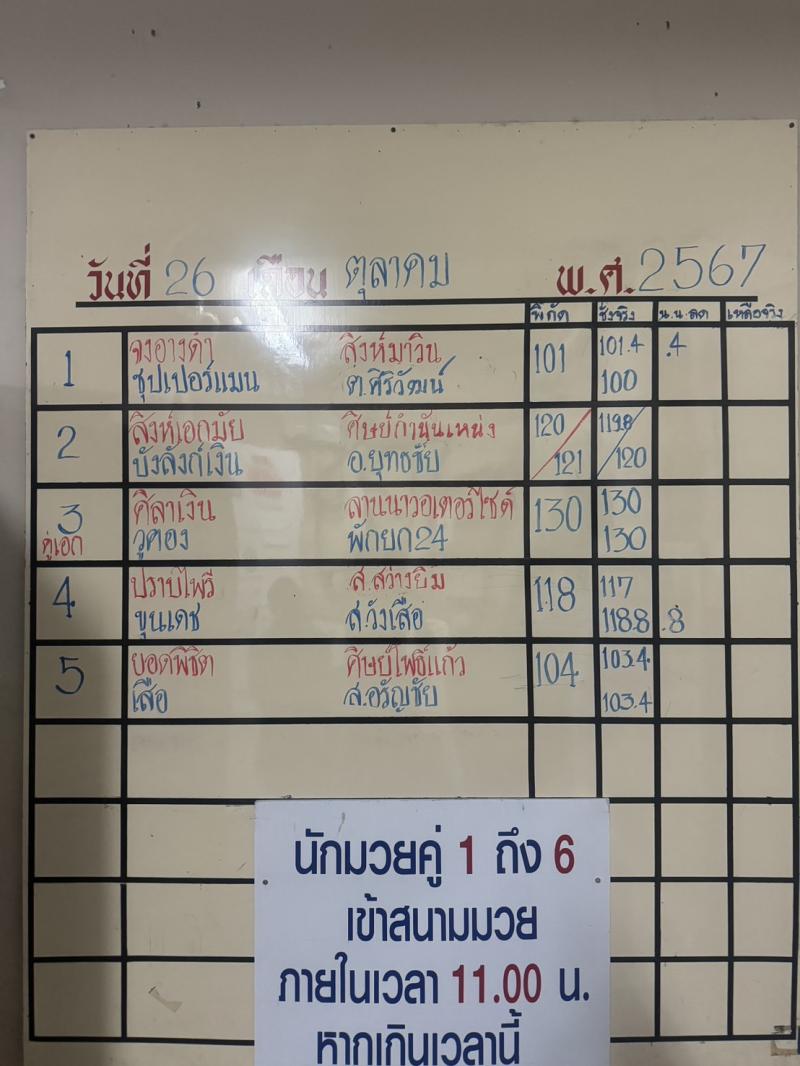 วันที่ 26 เดือน ตุลาคม พ.ศ. 2567
พิกัด ชั่งจริง น.น.ลด เหลือจริง
1 จงอางดำ สิงห์มาวิน 101 101.4 .4
ซุปเปอร์แมน ต.ศิริวัฒน์ 100
2 สิงห์เอกมัย ศิษย์กำนันเหน่ง 120 119.8
บังลังก์เงิน อ.ยุทธชัย 121 120
3 ศิลาเงิน ลานนาวอเตอร์ไซด์ 130 130
คู่เอก วูคอง พักยก24 130
4 ปราบไพรี ส.สว่างยิ้ม 118 117
ขุนเดช ส.วังเสือ 118.8 .8
5 ยอดพิชิต ศิษย์โพธิ์แก้ว 104 103.4
เสือ ส.อรัญชัย 103.4
นักมวยคู่ 1 ถึง 6
เข้าสนามมวย
ภายในเวลา 11.00 น.
หากเกินเวลานี้